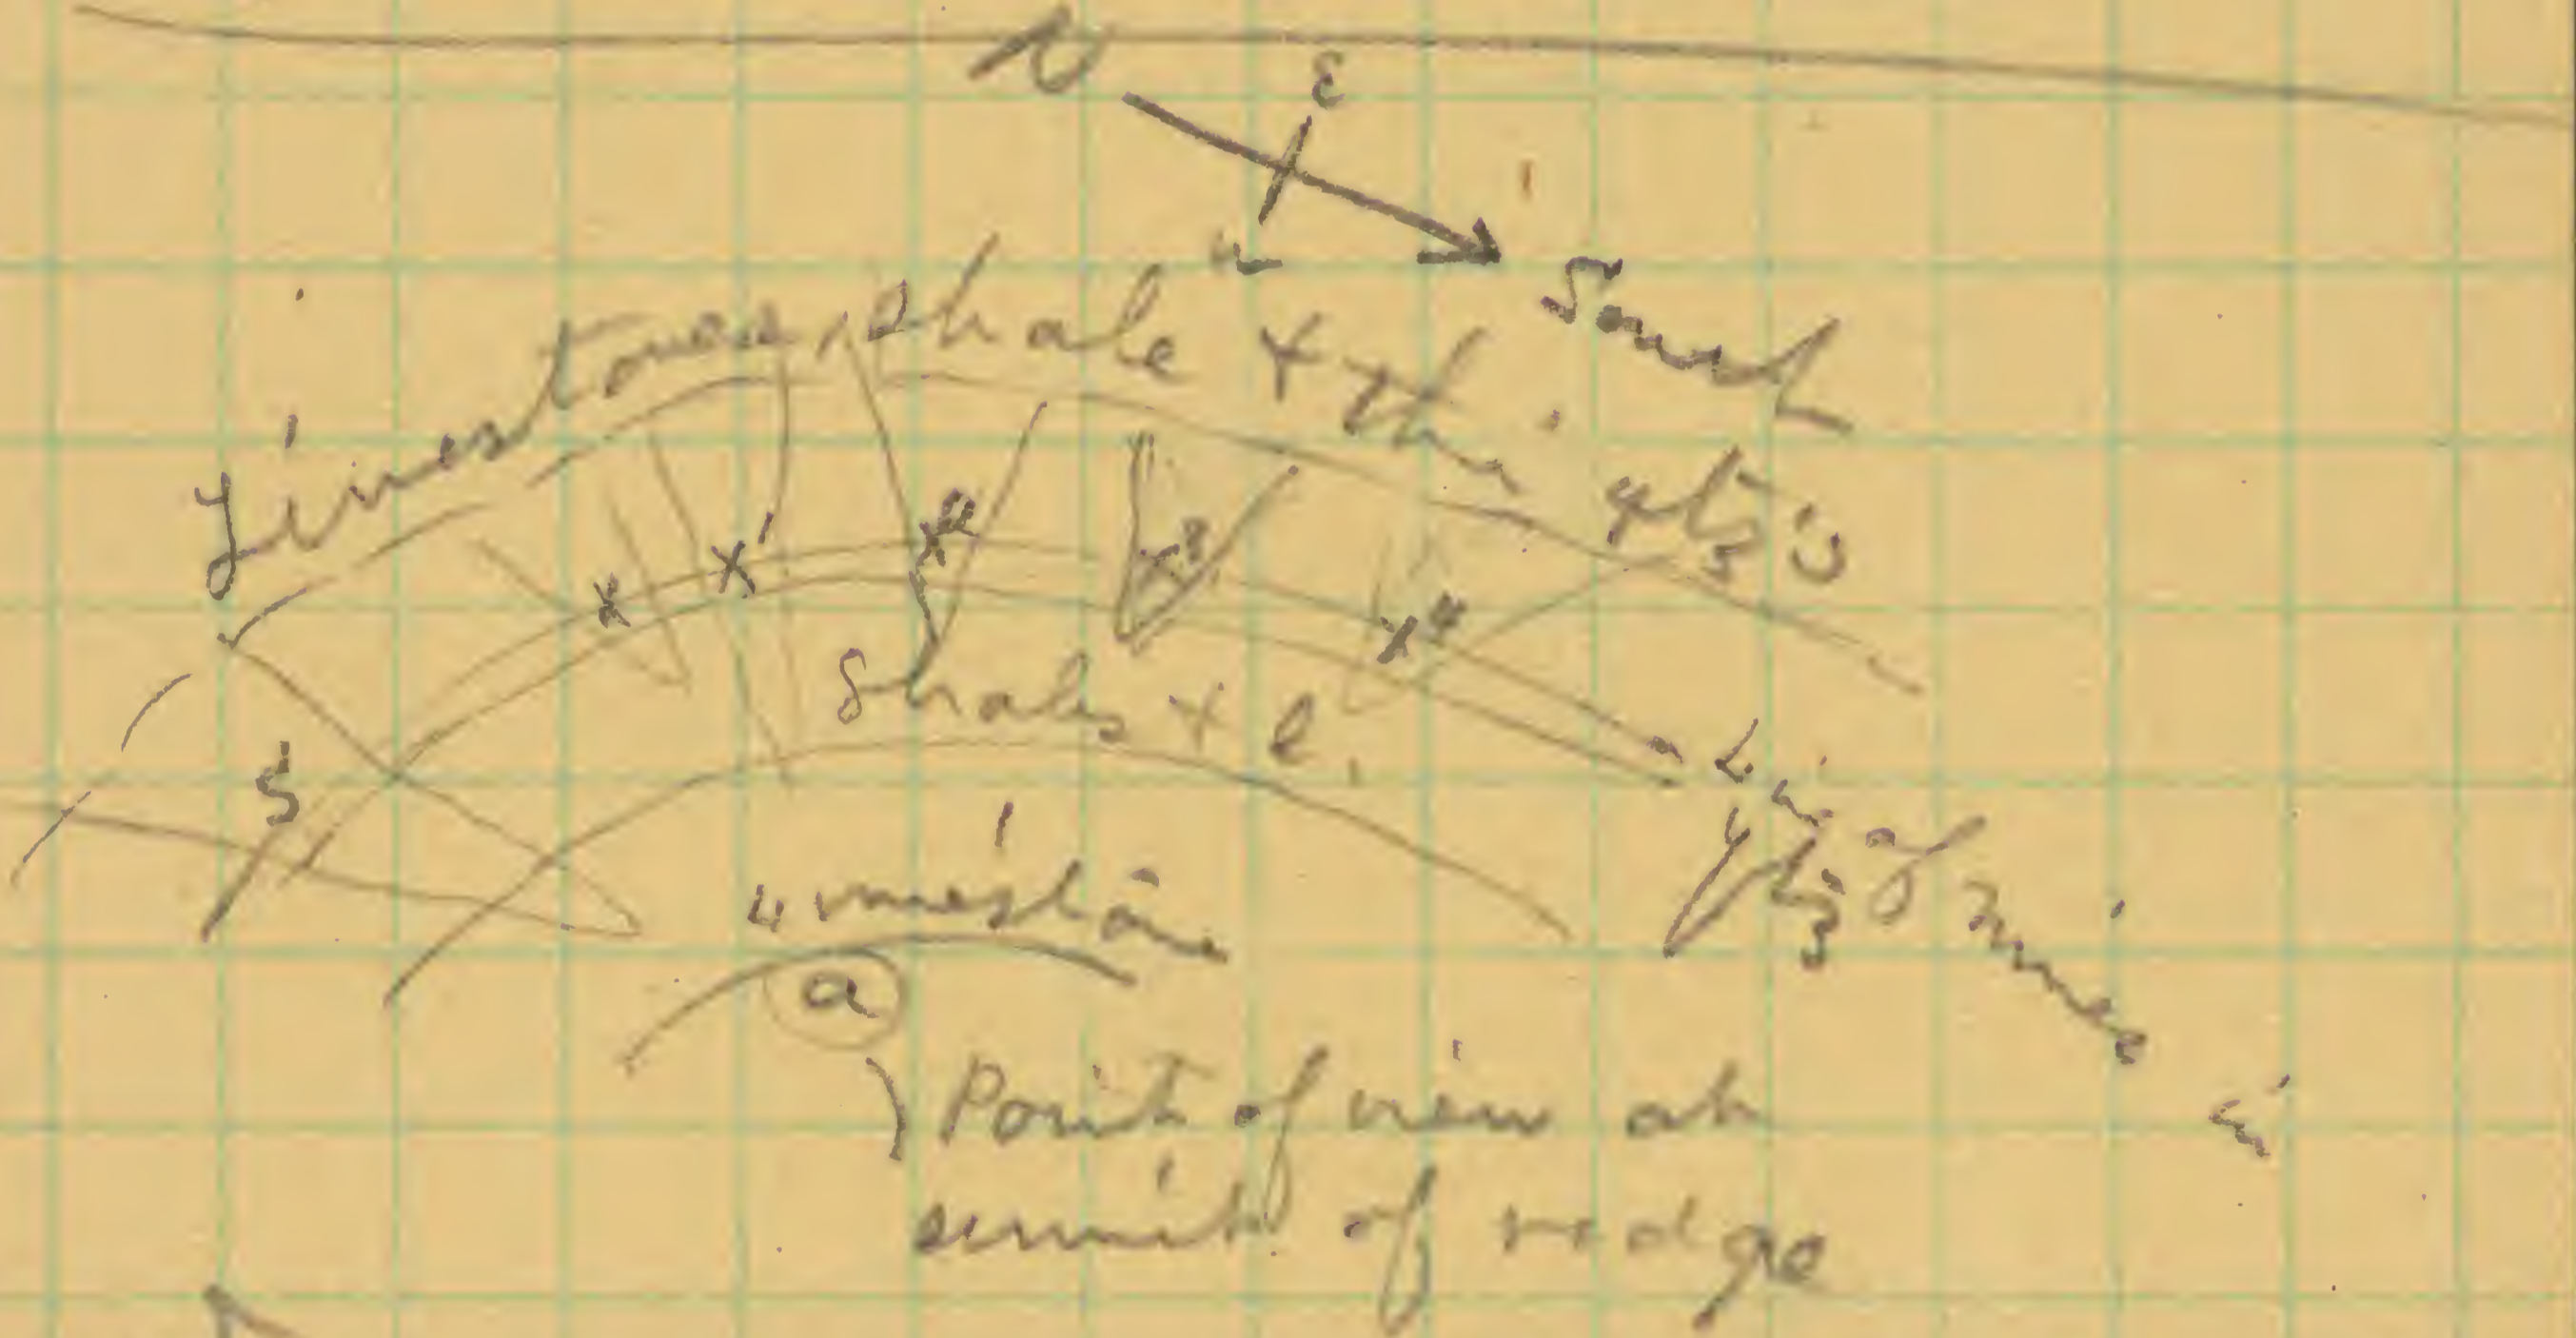 N
E
W
South
Limestones, shale + thin qtz's
x x' x² x³ x⁴
Shales + l.
5
Line of mines in
qtz
Limestone
a
Point of view at
summit of ridge